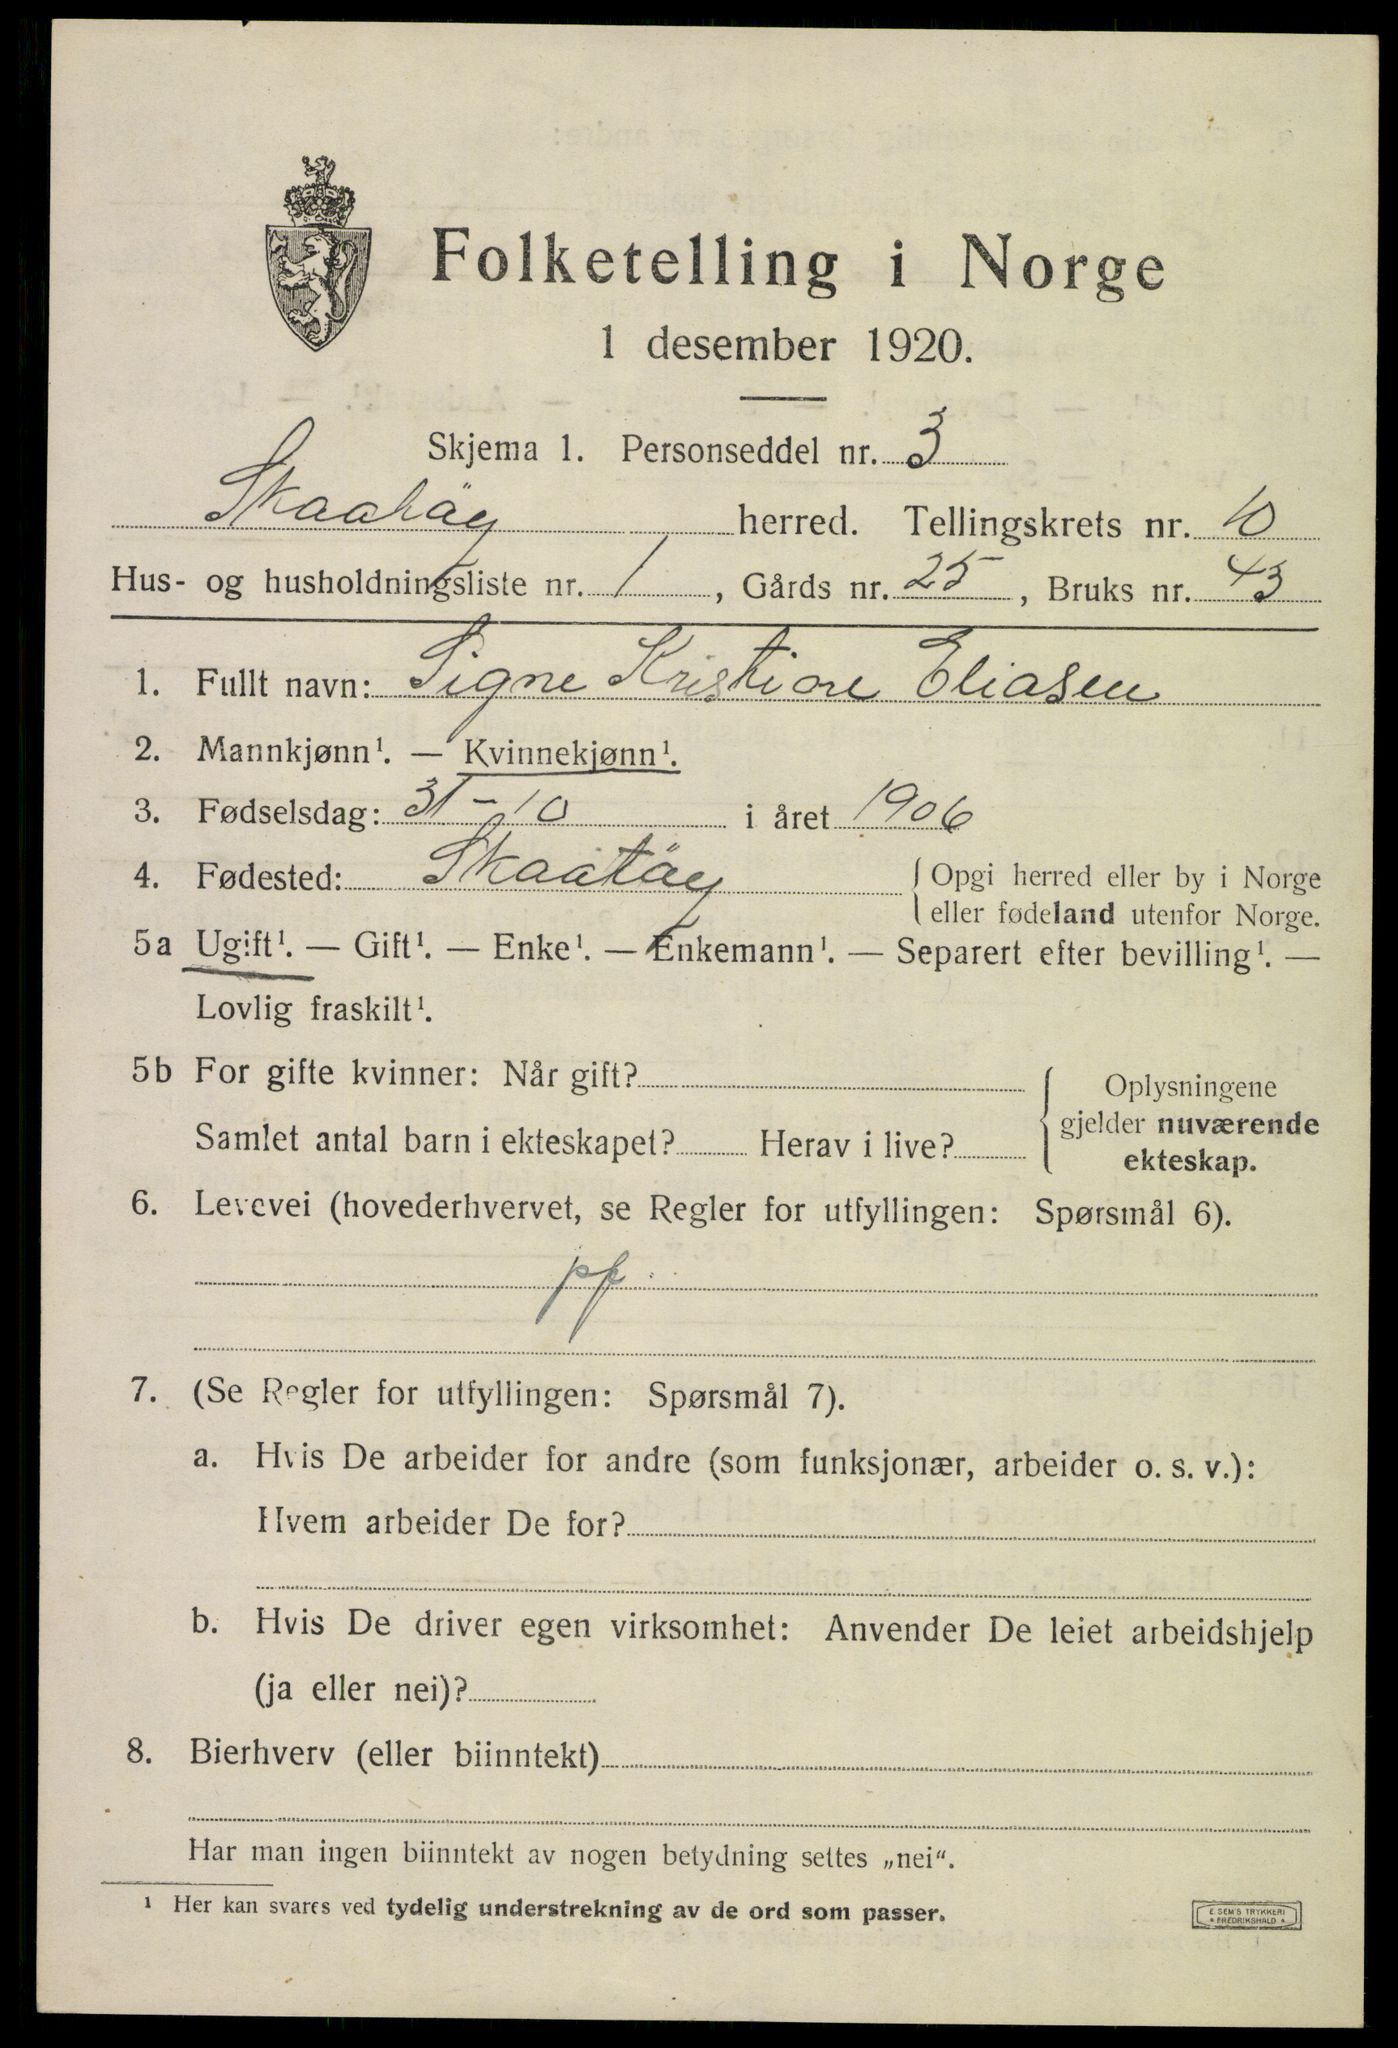 Folketelling i Norge
1 desember 1920.
Skjema 1. Personseddel nr. 3
Skaatöy herred. Tellingskrets nr. 10
Hus- og husholdningsliste nr. 1, Gårds nr. 25, Bruks nr. 43
1. Fullt navn: Signe Kristine Eliasen
2. Mannkjønn¹. — Kvinnekjønn¹.
3. Fødselsdag: 31-10 i året 1906
4. Fødested: Skaatöy { Opgi herred eller by i Norge
eller fødeland utenfor Norge.
5a Ugift¹. — Gift¹. — Enke¹. — Enkemann¹. — Separert efter bevilling¹. —
Lovlig fraskilt¹.
5b For gifte kvinner: Når gift? { Oplysningene
gjelder nuværende
Samlet antal barn i ekteskapet? Herav i live? ekteskap.
6. Levevei (hovederhvervet, se Regler for utfyllingen: Spørsmål 6).
pf
7. (Se Regler for utfyllingen: Spørsmål 7).
a. Hvis De arbeider for andre (som funksjonær, arbeider o. s. v.):
Hvem arbeider De for?
b. Hvis De driver egen virksomhet: Anvender De leiet arbeidshjelp
(ja eller nei)?
8. Bierhverv (eller biinntekt)
Har man ingen biinntekt av nogen betydning settes „nei“.
¹ Her kan svares ved tydelig understrekning av de ord som passer.
E. SEM'S TRYKKERI
* FREDRIKSHALD *